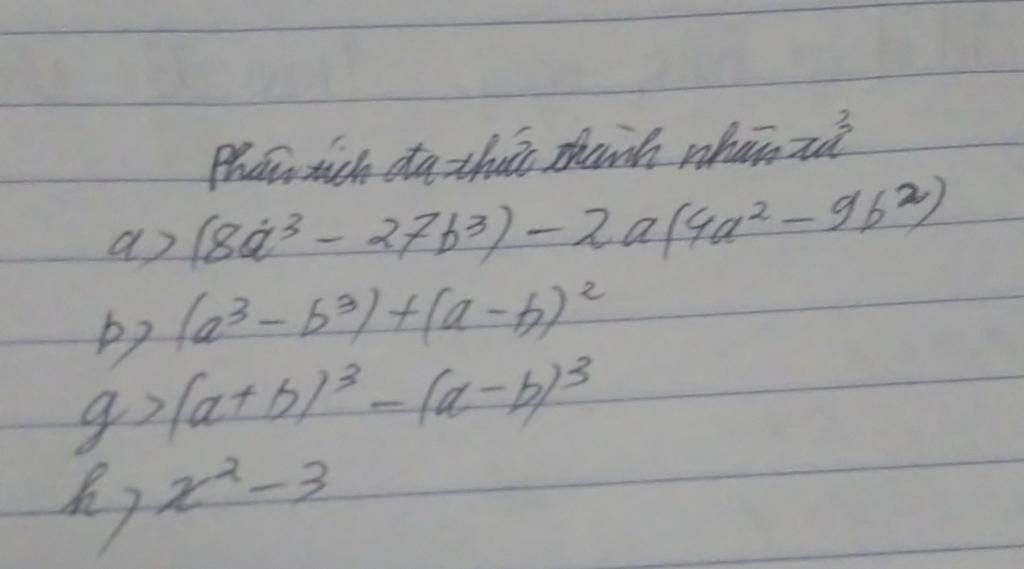 Phân tích đa thức thành nhân tử
a> (8a³ - 27b³) - 2a(4a² - 9b²)
b> (a³ - b³) + (a - b)²
g> (a + b)³ - (a - b)³
h> x² - 3